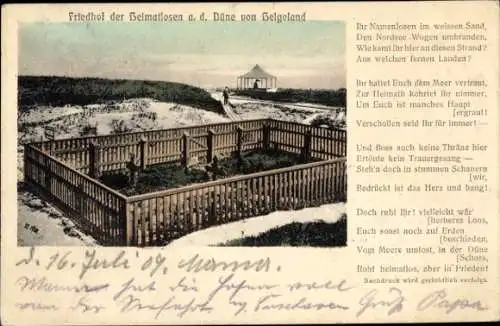 Friedhof der Heimatlosen a. d. Düne von Helgoland
Ihr Namenlosen im weissen Sand,
Den Nordsee-Wogen umbranden,
Wie kamt Ihr hier an diesen Strand?
Aus welchen fernen Landen?
Ihr hattet Euch dem Meer vertraut,
Zur Heimath kehrtet Ihr nimmer,
Um Euch ist manches Haupt
[ergraut!
Verschollen seid Ihr für immer! —
Und floss auch keine Thräne hier
Ertönte kein Trauergesang —
Steh'n doch in stummen Schauern
[wir,
Bedrückt ist das Herz und bang!
Doch ruht Ihr! vielleicht wär'
[herberes Loos,
Euch sonst auf Erden
[beschieden,
Vom Meere umtost, in der Düne
[Schoss,
Ruht heimatlos, aber in Frieden!
Nachdruck wird gerichtlich verfolgt.
d. 16 Juli 09. Mama
waren wir doch
von der Seefahrt
Gruß Papa